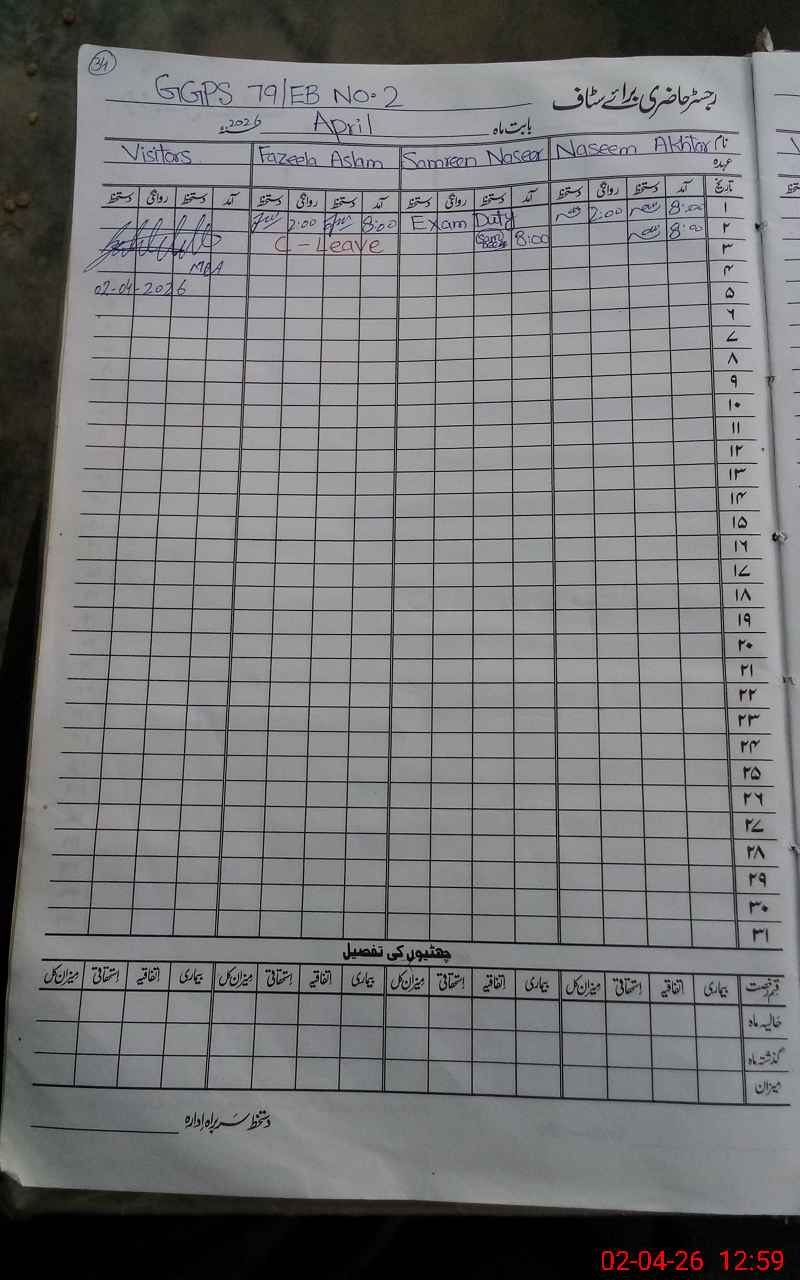 31
GGPS 79/EB NO.2
رجسٹر حاضری برائے سٹاف
بابت ماہ April 2026ء
نام Naseem Akhtar Samreen Naseer Fazeela Aslam Visitors
عہدہ
تاریخ آمد دستخط روانگی دستخط آمد دستخط روانگی دستخط آمد دستخط روانگی دستخط آمد دستخط روانگی دستخط
۱ 8:00 2:00 Exam Duty 8:00 2:00
۲ 8:00 8:00 C-Leave
۳
MEA
۴
02-04-2026
۵
۶
۷
۸
۹
۱۰
۱۱
۱۲
۱۳
۱۴
۱۵
۱۶
۱۷
۱۸
۱۹
۲۰
۲۱
۲۲
۲۳
۲۴
۲۵
۲۶
۲۷
۲۸
۲۹
۳۰
۳۱
چھٹیوں کی تفصیل
قسم رخصت بیماری اتفاقیہ استحقاقی میزان کل بیماری اتفاقیہ استحقاقی میزان کل بیماری اتفاقیہ استحقاقی میزان کل بیماری اتفاقیہ استحقاقی میزان کل
حالیہ ماہ
گذشتہ ماہ
میزان
دستخط سربراہ ادارہ
02-04-26 12:59